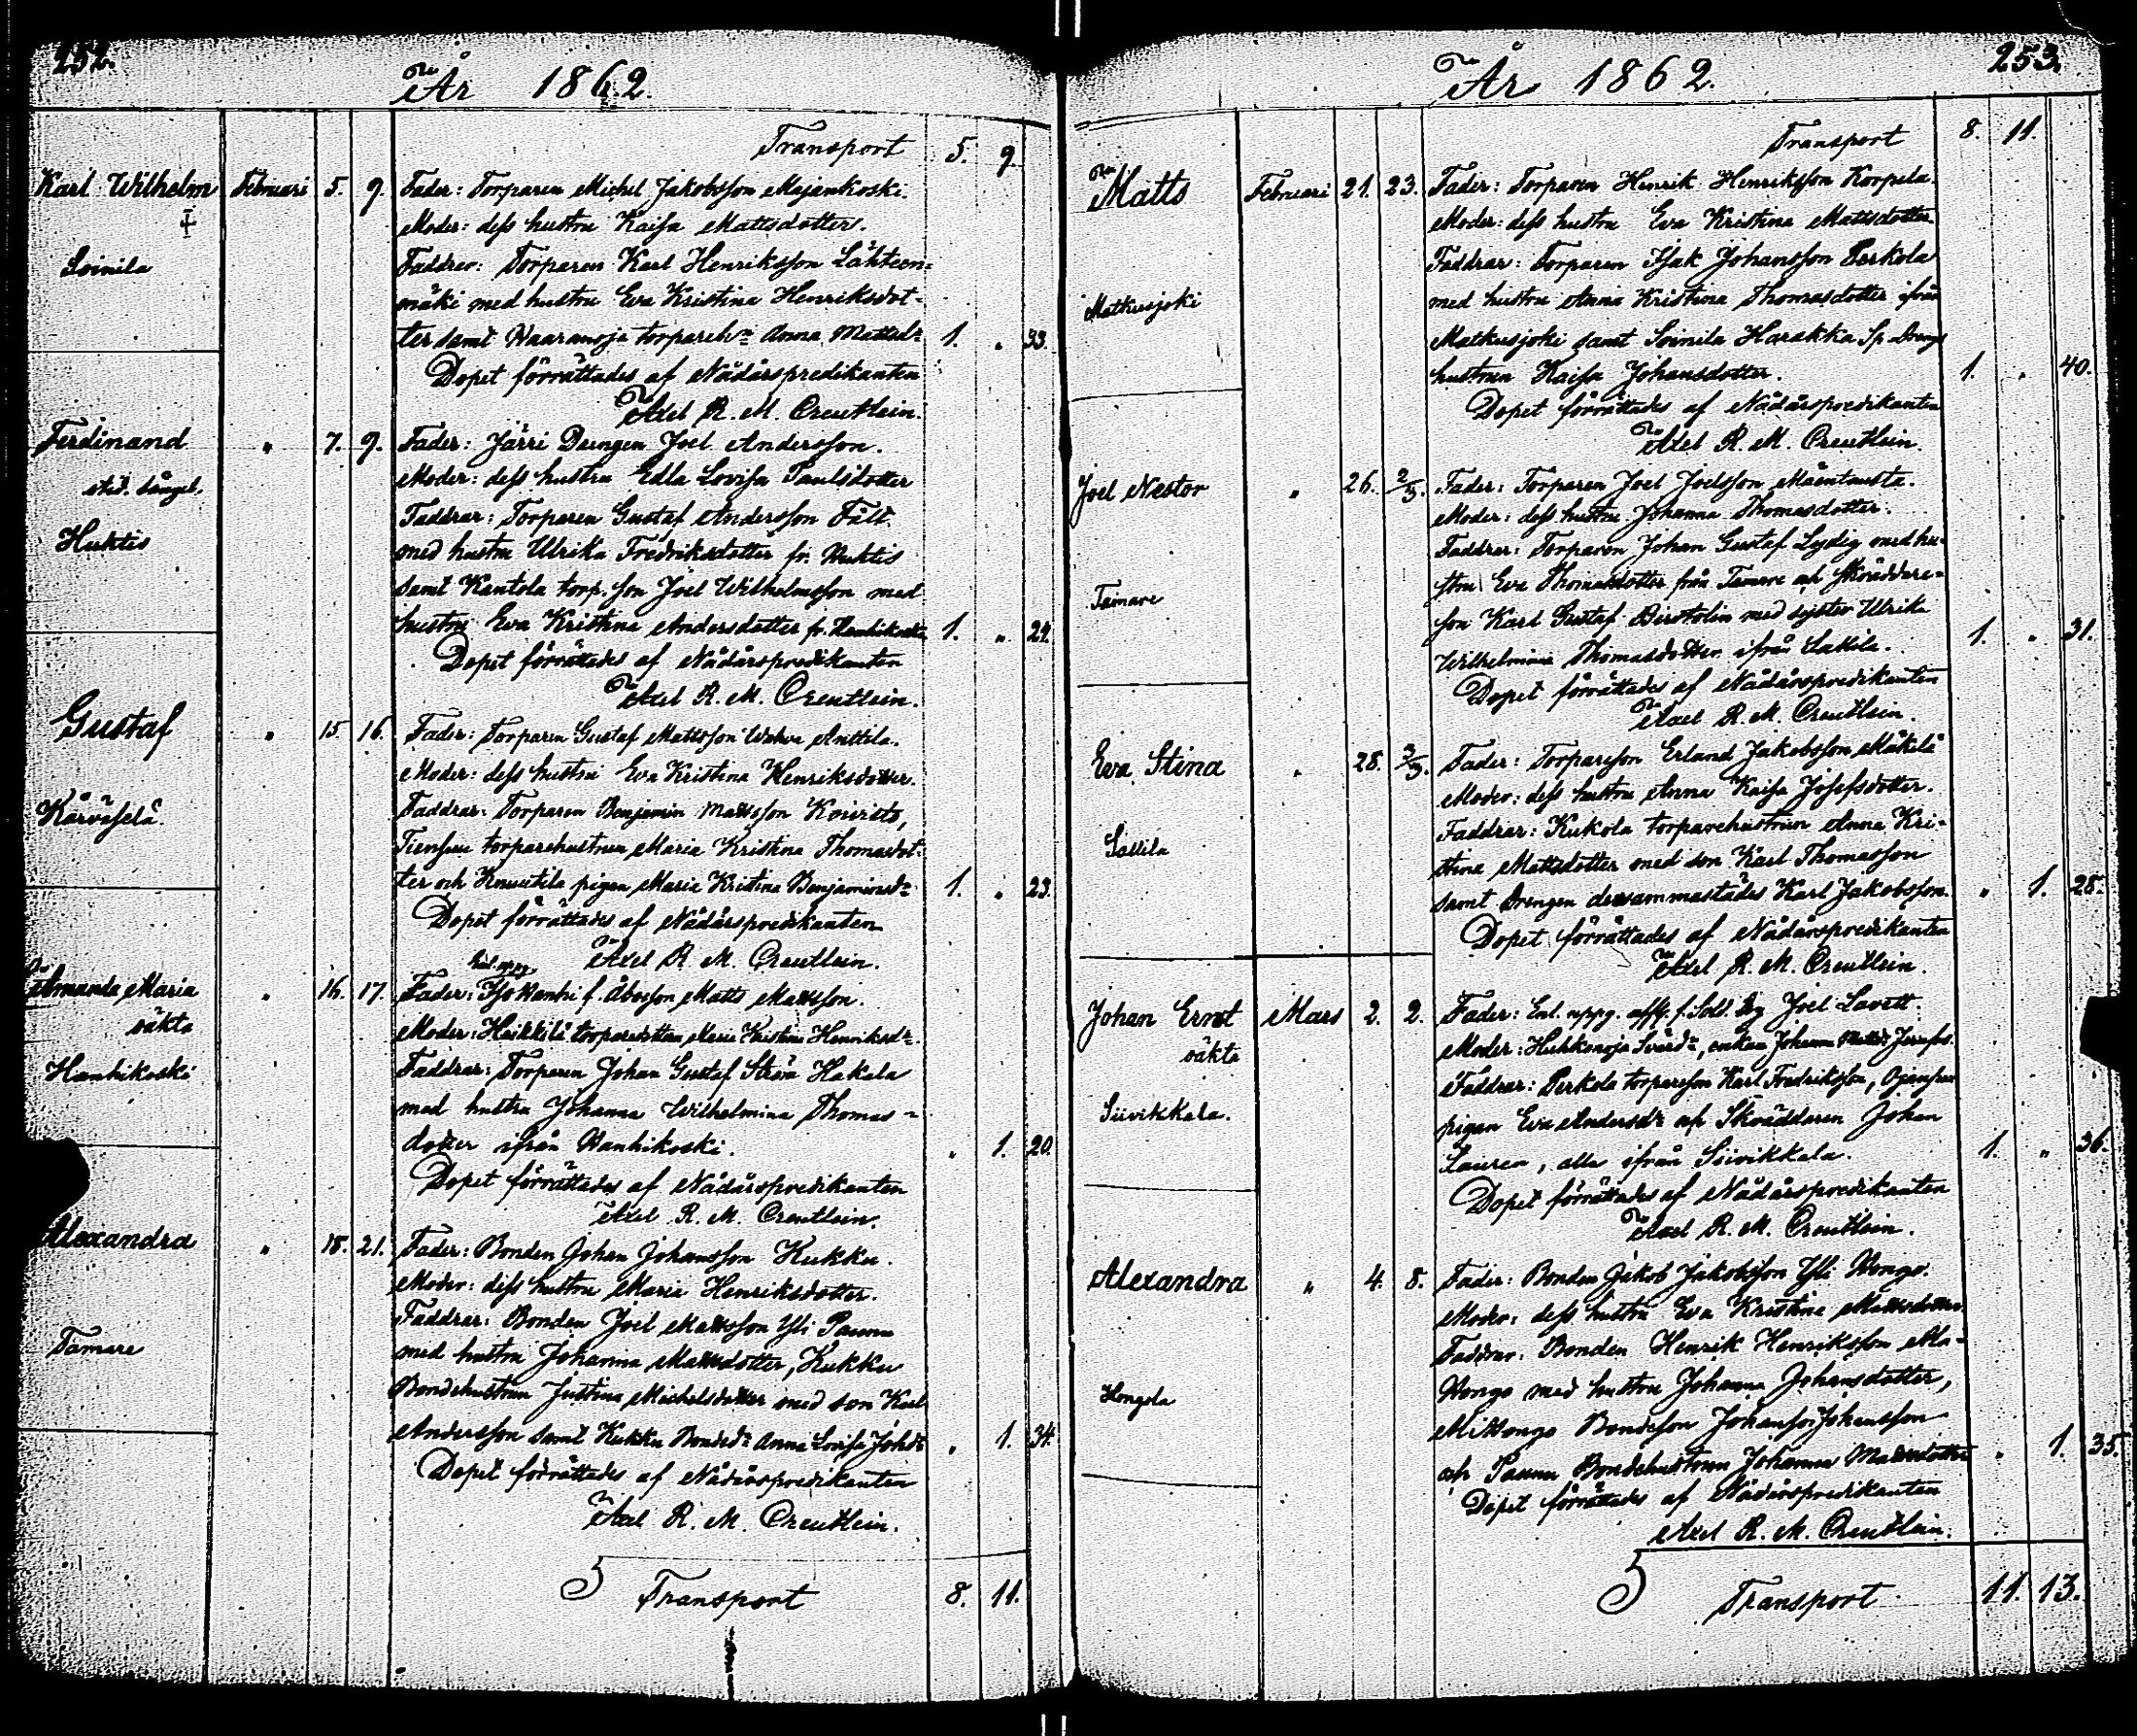 252.
År 1862.
Transport 5. 9.
Karl Wilhelm Februari 5. 9. Fader: Torparen Michel Jakobsson Majankoski.
Moder: dess hustru Kaisa Mattsdotter.
Soinila Faddrar: Torparen Karl Henriksson Lähteen-
mäki med hustru Eva Kristina Henriksdot-
ter samt torpareh. Anna Mattsd. 1. " 33.
Dopet förrättades af Nådårspredikanten
Axel R. M. Creutlein.
Ferdinand " 7. 9. Fader: Järri Drengen Joel Andersson.
Moder: dess hustru Edla Lovisa Paulsdotter
Huktis Faddrar: Torparen Gustaf Andersson Fält
med hustru Ulrika Fredriksdotter fr. Huktis
samt Kantola torp. son Joel Wilhelmsson med
hustru Eva Kristina Andersdotter fr. Hanhikoski 1. " 24.
Dopet förrättades af Nådårspredikanten
Axel R. M. Creutlein.
Gustaf " 15. 16. Fader: Torparen Gustaf Mattsson Anttila.
Moder: dess hustru Eva Kristina Henriksdotter.
Kärväselä. Faddrar: Torparen Benjamin Mattsson Koivisto,
torparehustrun Maria Kristina Thomasdot-
ter och Knuutila pigan Maria Kristina Benjaminsd. 1. " 23.
Dopet förrättades af Nådårspredikanten
Axel R. M. Creutlein.
Amanda Maria " 16. 17. Fader: f. Åboson Matts Mattsson.
oäkta Moder: Heikkilä torparedottren Maria Kristina Henriksd.
Hanhikoski Faddrar: Torparen Johan Gustaf Ström Hakala
med hustru Johanna Wilhelmina Thomas-
dotter ifrån Hanhikoski. " 1. 20.
Dopet förrättades af Nådårspredikanten
Axel R. M. Creutlein.
Alexandra " 18. 21. Fader: Bonden Johan Johansson Kukku.
Moder: dess hustru Maria Henriksdotter.
Faddrar: Bonden Joel Mattsson Yli Pannu
Tamare med hustru Johanna Mattsdotter, Kukku
Bondehustrun Justina Michelsdotter med son Karl
Andersson samt Kukku Bonded. Anna Lovisa Johsd. " 1. 34.
Dopet förrättades af Nådårspredikanten
Axel R. M. Creutlein.
5 Transport 8. 11.
253.
År 1862.
Transport 8. 11.
Matts Februari 21. 23. Fader: Torparen Henrik Henriksson Korpela.
Moder: dess hustru Eva Kristina Mattsdotter.
Faddrar: Torparen Isak Johansson Perkola
Matkusjoki med hustru Anna Kristina Thomasdotter ifrån
Matkusjoki samt Soinila Harakka Sp. drengs
hustrun Kaisa Johansdotter. 1. " 40.
Dopet förrättades af Nådårspredikanten
Axel R. M. Creutlein.
Joel Nestor " 26. 2/3. Fader: Torparen Joel Joelsson Mäentausta.
Moder: dess hustru Johanna Thomasdotter.
Faddrar: Torparen Johan Gustaf Lydig med hu-
Tamare stru Eva Thomasdotter från Tamare och Skräddare-
son Karl Gustaf Birstolin med syster Ulrika
Wilhelmina Thomasdotter ifrån Lakila. 1. " 31.
Dopet förrättades af Nådårspredikanten
Axel R. M. Creutlein.
Eva Stina " 28. 3/3. Fader: Torpareson Erland Jakobsson Mäkelä
Moder: dess hustru Anna Kaisa Josefsdotter.
Faddrar: Kukola torparehustrun Anna Kri-
stina Mattsdotter med son Karl Thomasson
samt Drengen dersammastädes Karl Jakobsson. " 1. 28.
Dopet förrättades af Nådårspredikanten
Axel R. M. Creutlein.
Johan Ernst Mars 2. 2. Fader: Enl. uppg. affsk. f. Sold. Joel Lavett.
oäkta Moder: enkan Johanna
Siivikkala. Faddrar: Perkola torpareson Karl Fredriksson,
pigan Eva Andersd. och Skräddaren Johan
Lauren, alla ifrån Siivikkala. 1. " 36.
Dopet förrättades af Nådårspredikanten
Axel R. M. Creutlein.
Alexandra " 4. 8. Fader: Bonden Jakob Jakobsson Yli Hongo.
Moder: dess hustru Eva Kristina Mattsdotter.
Faddrar: Bonden Henrik Henriksson Ala-
Hongola Hongo med hustru Johanna Johansdotter,
Bondeson Johansson
och Pannu Bondehustrun Johanna Mattsdotter " 1. 35.
Dopet förrättades af Nådårspredikanten
Axel R. M. Creutlein.
5 Transport 11. 13.